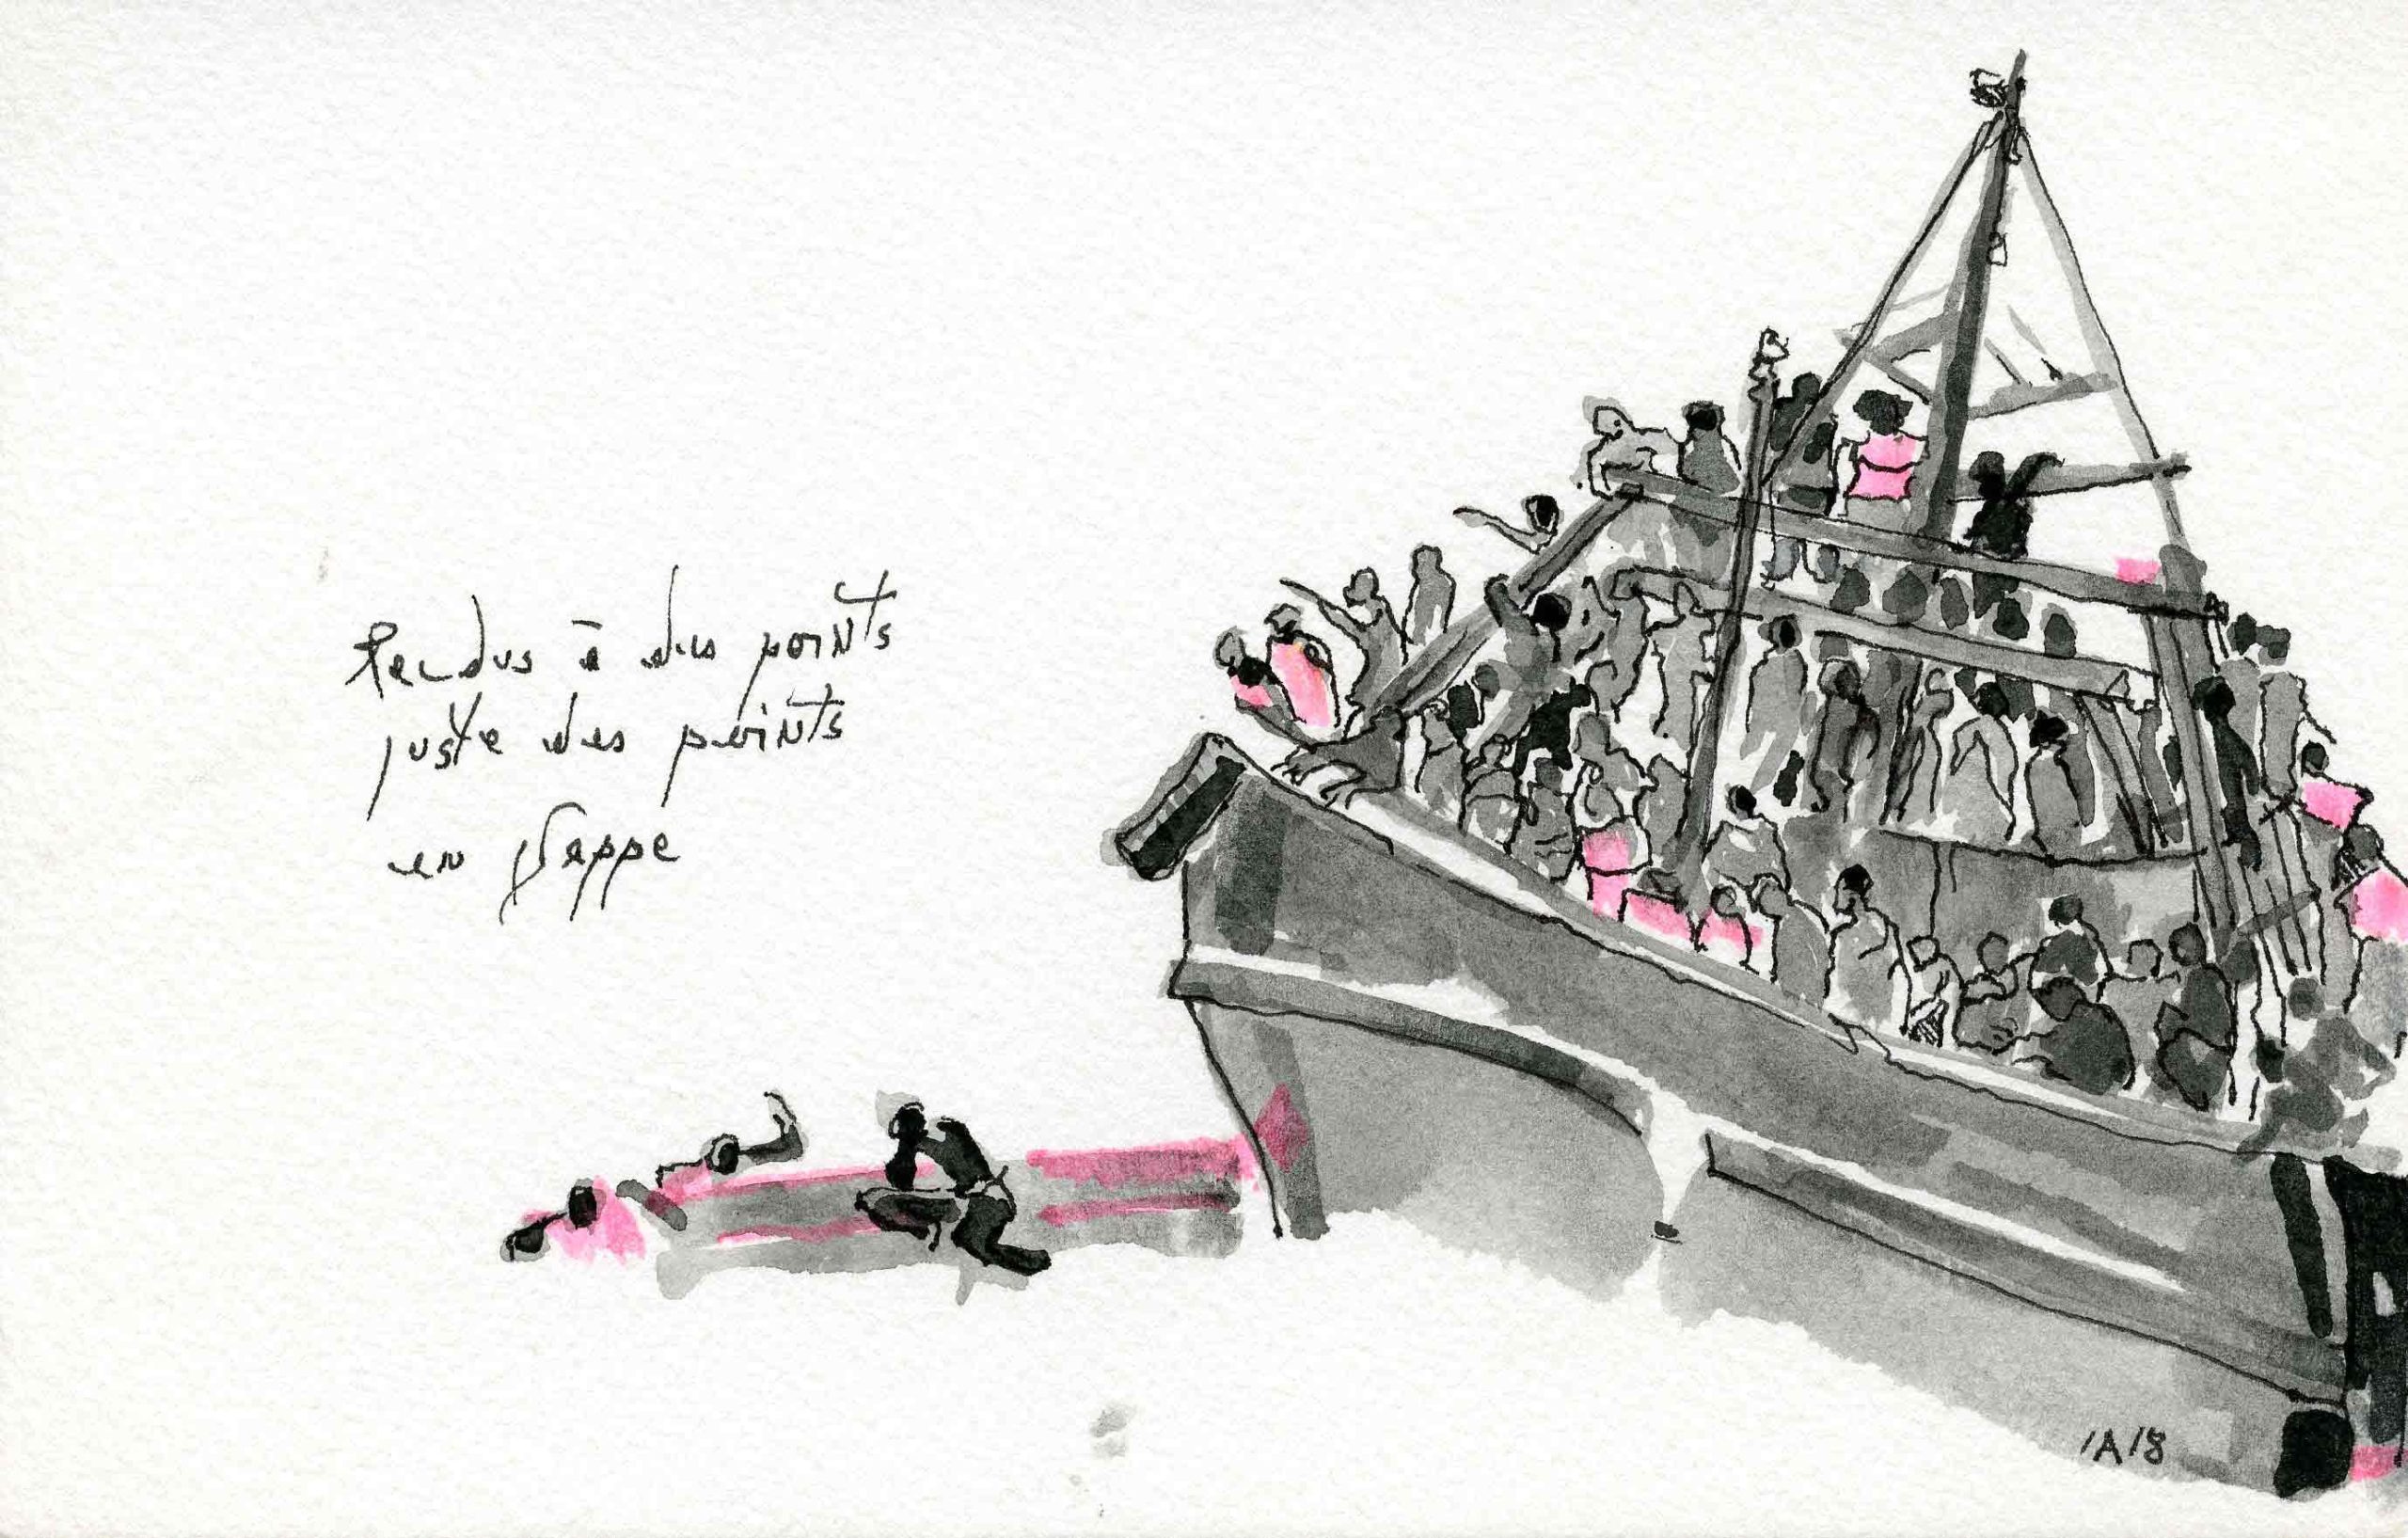 à des points
juste des points
en grappe
IA18